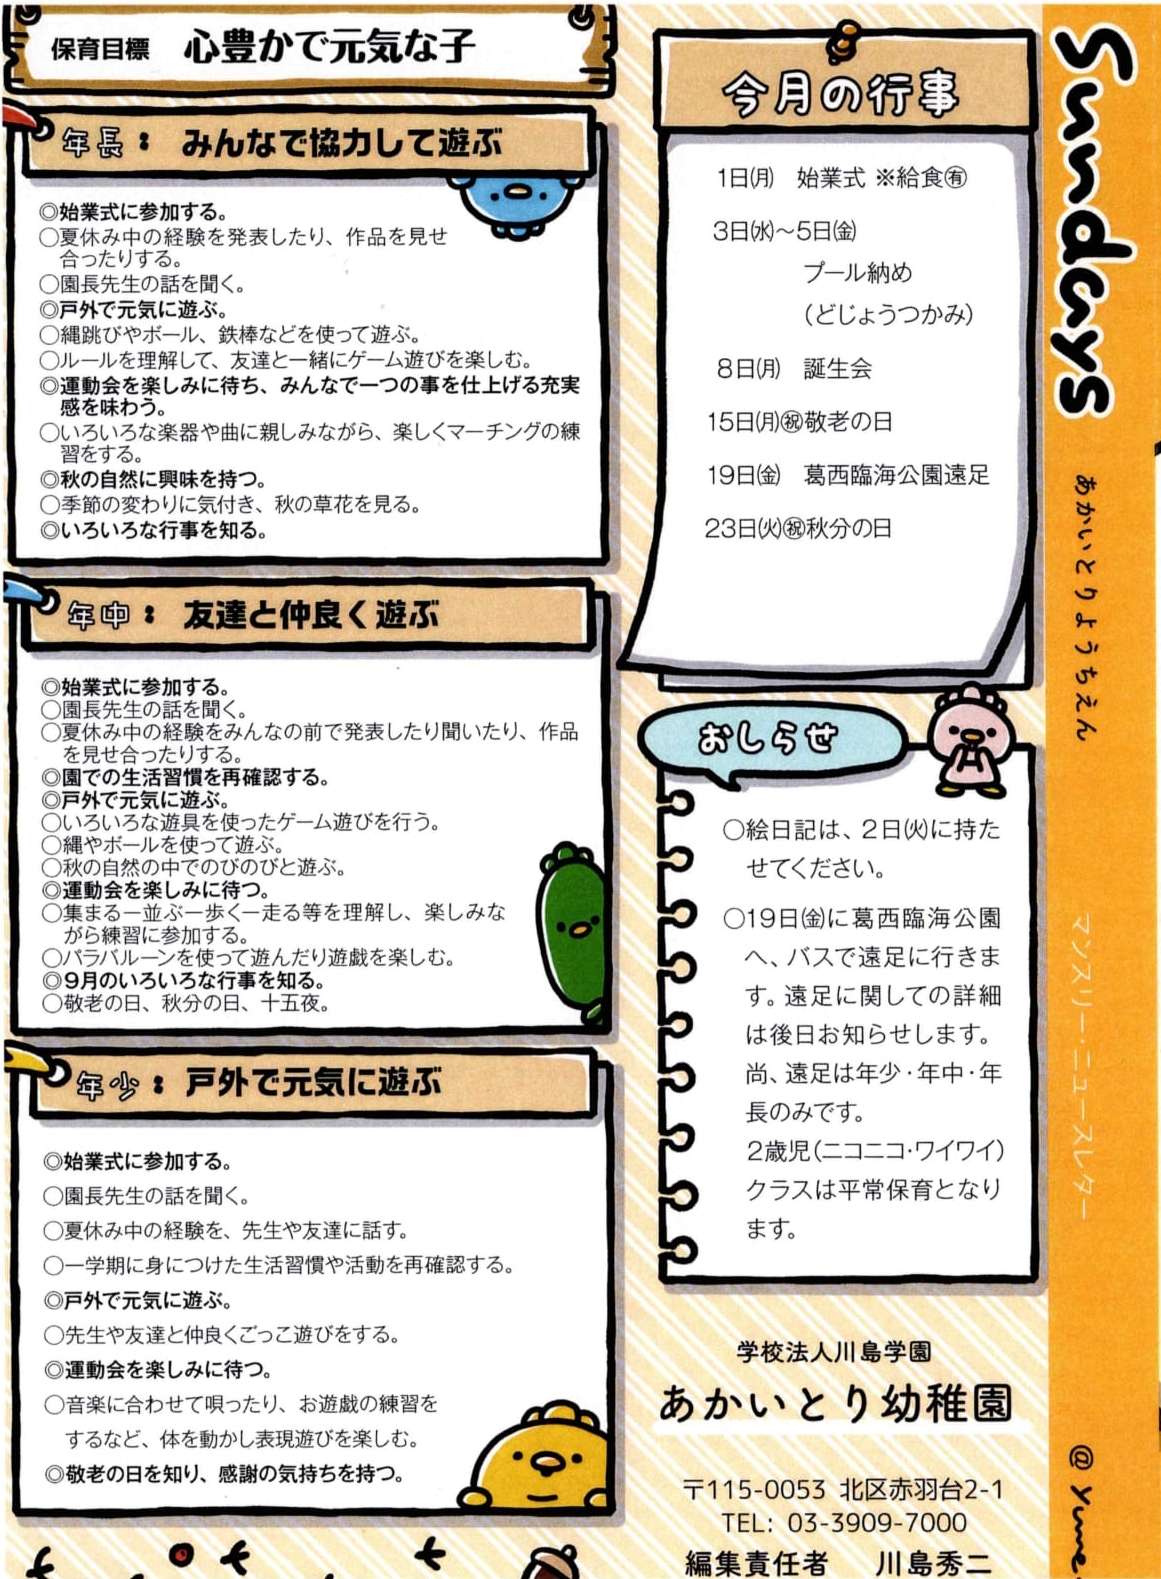 保育目標 心豊かで元気な子
年長： みんなで協力して遊ぶ
◎始業式に参加する。
○夏休み中の経験を発表したり、作品を見せ
合ったりする。
○園長先生の話を聞く。
◎戸外で元気に遊ぶ。
○縄跳びやボール、鉄棒などを使って遊ぶ。
○ルールを理解して、友達と一緒にゲーム遊びを楽しむ。
◎運動会を楽しみに待ち、みんなで一つの事を仕上げる充実
感を味わう。
○いろいろな楽器や曲に親しみながら、楽しくマーチングの練
習をする。
◎秋の自然に興味を持つ。
○季節の変わりに気付き、秋の草花を見る。
◎いろいろな行事を知る。
年中： 友達と仲良く遊ぶ
◎始業式に参加する。
○園長先生の話を聞く。
○夏休み中の経験をみんなの前で発表したり聞いたり、作品
を見せ合ったりする。
◎園での生活習慣を再確認する。
◎戸外で元気に遊ぶ。
○いろいろな遊具を使ったゲーム遊びを行う。
○縄やボールを使って遊ぶ。
○秋の自然の中でのびのびと遊ぶ。
◎運動会を楽しみに待つ。
○集まる―並ぶ―歩く―走る等を理解し、楽しみな
がら練習に参加する。
○パラバルーンを使って遊んだり遊戯を楽しむ。
◎9月のいろいろな行事を知る。
○敬老の日、秋分の日、十五夜。
年少： 戸外で元気に遊ぶ
◎始業式に参加する。
○園長先生の話を聞く。
○夏休み中の経験を、先生や友達に話す。
○一学期に身につけた生活習慣や活動を再確認する。
◎戸外で元気に遊ぶ。
○先生や友達と仲良くごっこ遊びをする。
◎運動会を楽しみに待つ。
○音楽に合わせて唄ったり、お遊戯の練習を
するなど、体を動かし表現遊びを楽しむ。
◎敬老の日を知り、感謝の気持ちを持つ。
今月の行事
1日㈪ 始業式 ※給食㊒
3日㈬～5日㈮
プール納め
（どじょうつかみ）
8日㈪ 誕生会
15日㈪㊗敬老の日
19日㈮ 葛西臨海公園遠足
23日㈫㊗秋分の日
おしらせ
○絵日記は、2日㈫に持た
せてください。
○19日㈮に葛西臨海公園
へ、バスで遠足に行きま
す。遠足に関しての詳細
は後日お知らせします。
尚、遠足は年少・年中・年
長のみです。
2歳児（ニコニコ・ワイワイ）
クラスは平常保育となり
ます。
学校法人川島学園
あかいとり幼稚園
〒115-0053 北区赤羽台2-1
TEL: 03-3909-7000
編集責任者 川島秀二
Sundays
あかいとりようちえん
マンスリー・ニュースレター
@ yume